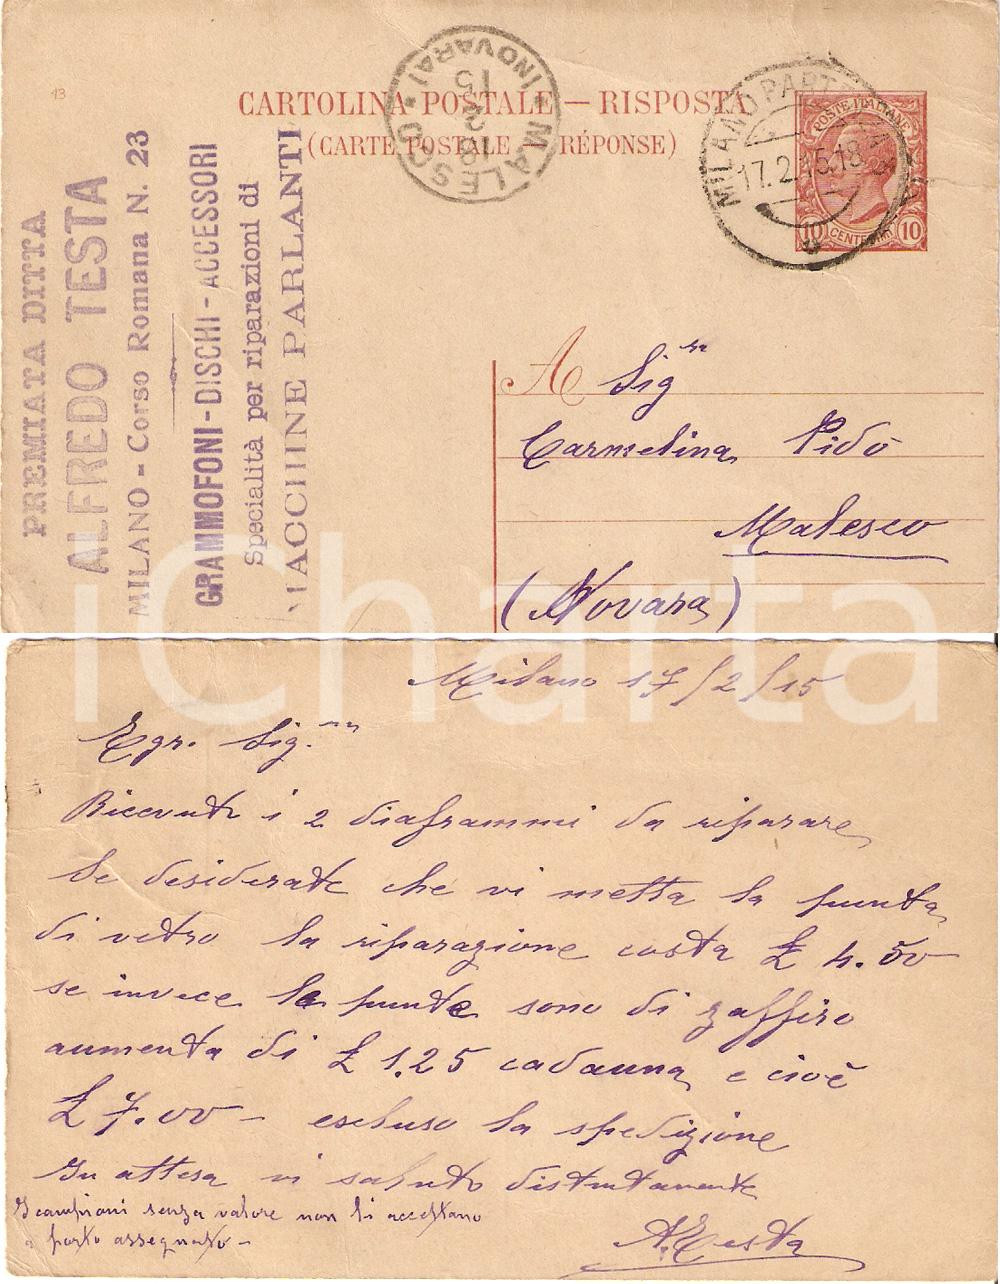 13
CARTOLINA POSTALE — RISPOSTA
(CARTE POSTALE — RÉPONSE)
MALESCO (NOVARA)
18.2.15
MILANO PARTENZA
17.2.15.18
POSTE ITALIANE
10 CENTESIMI 10
PREMIATA DITTA
ALFREDO TESTA
MILANO - Corso Romana N. 23
GRAMMOFONI - DISCHI - ACCESSORI
Specialità per riparazioni di
MACCHINE PARLANTI
A Sig.ra
Carmelina Pidò
Malesco
(Novara)
iCharta
Milano 17/2/15
Egr. Sig.
Ricevuti i 2 diaframmi da riparare
Se desiderate che vi metta la punta
di vetro la riparazione costa £ 4.50
se invece le punte sono di zaffiro
aumenta di £ 1.25 cadauna e cioè
£ 7.00 — escluso la spedizione
In attesa vi saluto distintamente
I campioni senza valore non si accettano
a porto assegnato -
A. Testa